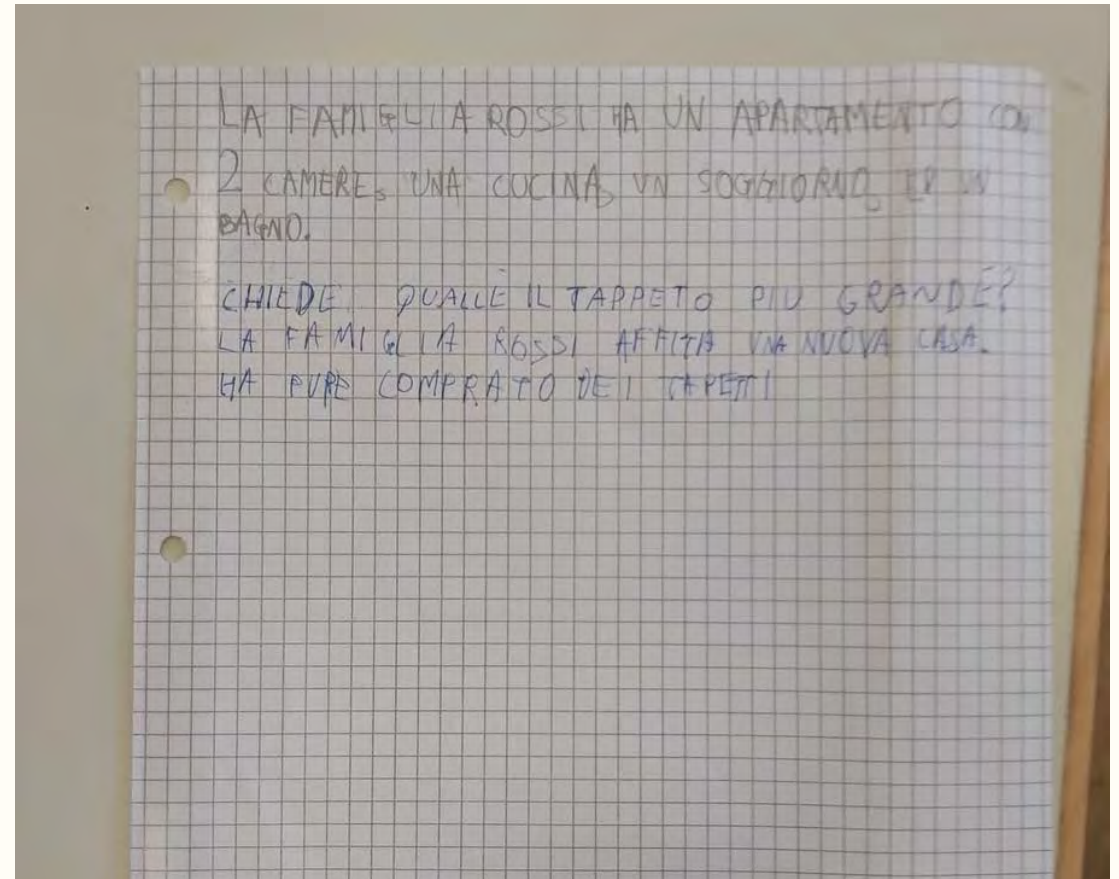 LA FAMIGLIA ROSSI HA UN APARTAMENTO CON
2 CAMERE, UNA CUCINA, UN SOGGIORNO, UN
BAGNO.
CHIEDE QUALLE IL TAPPETO PIÙ GRANDE?
LA FAMIGLIA ROSSI AFFITA UNA NUOVA CASA.
HA PURE COMPRATO DEI TAPETTI